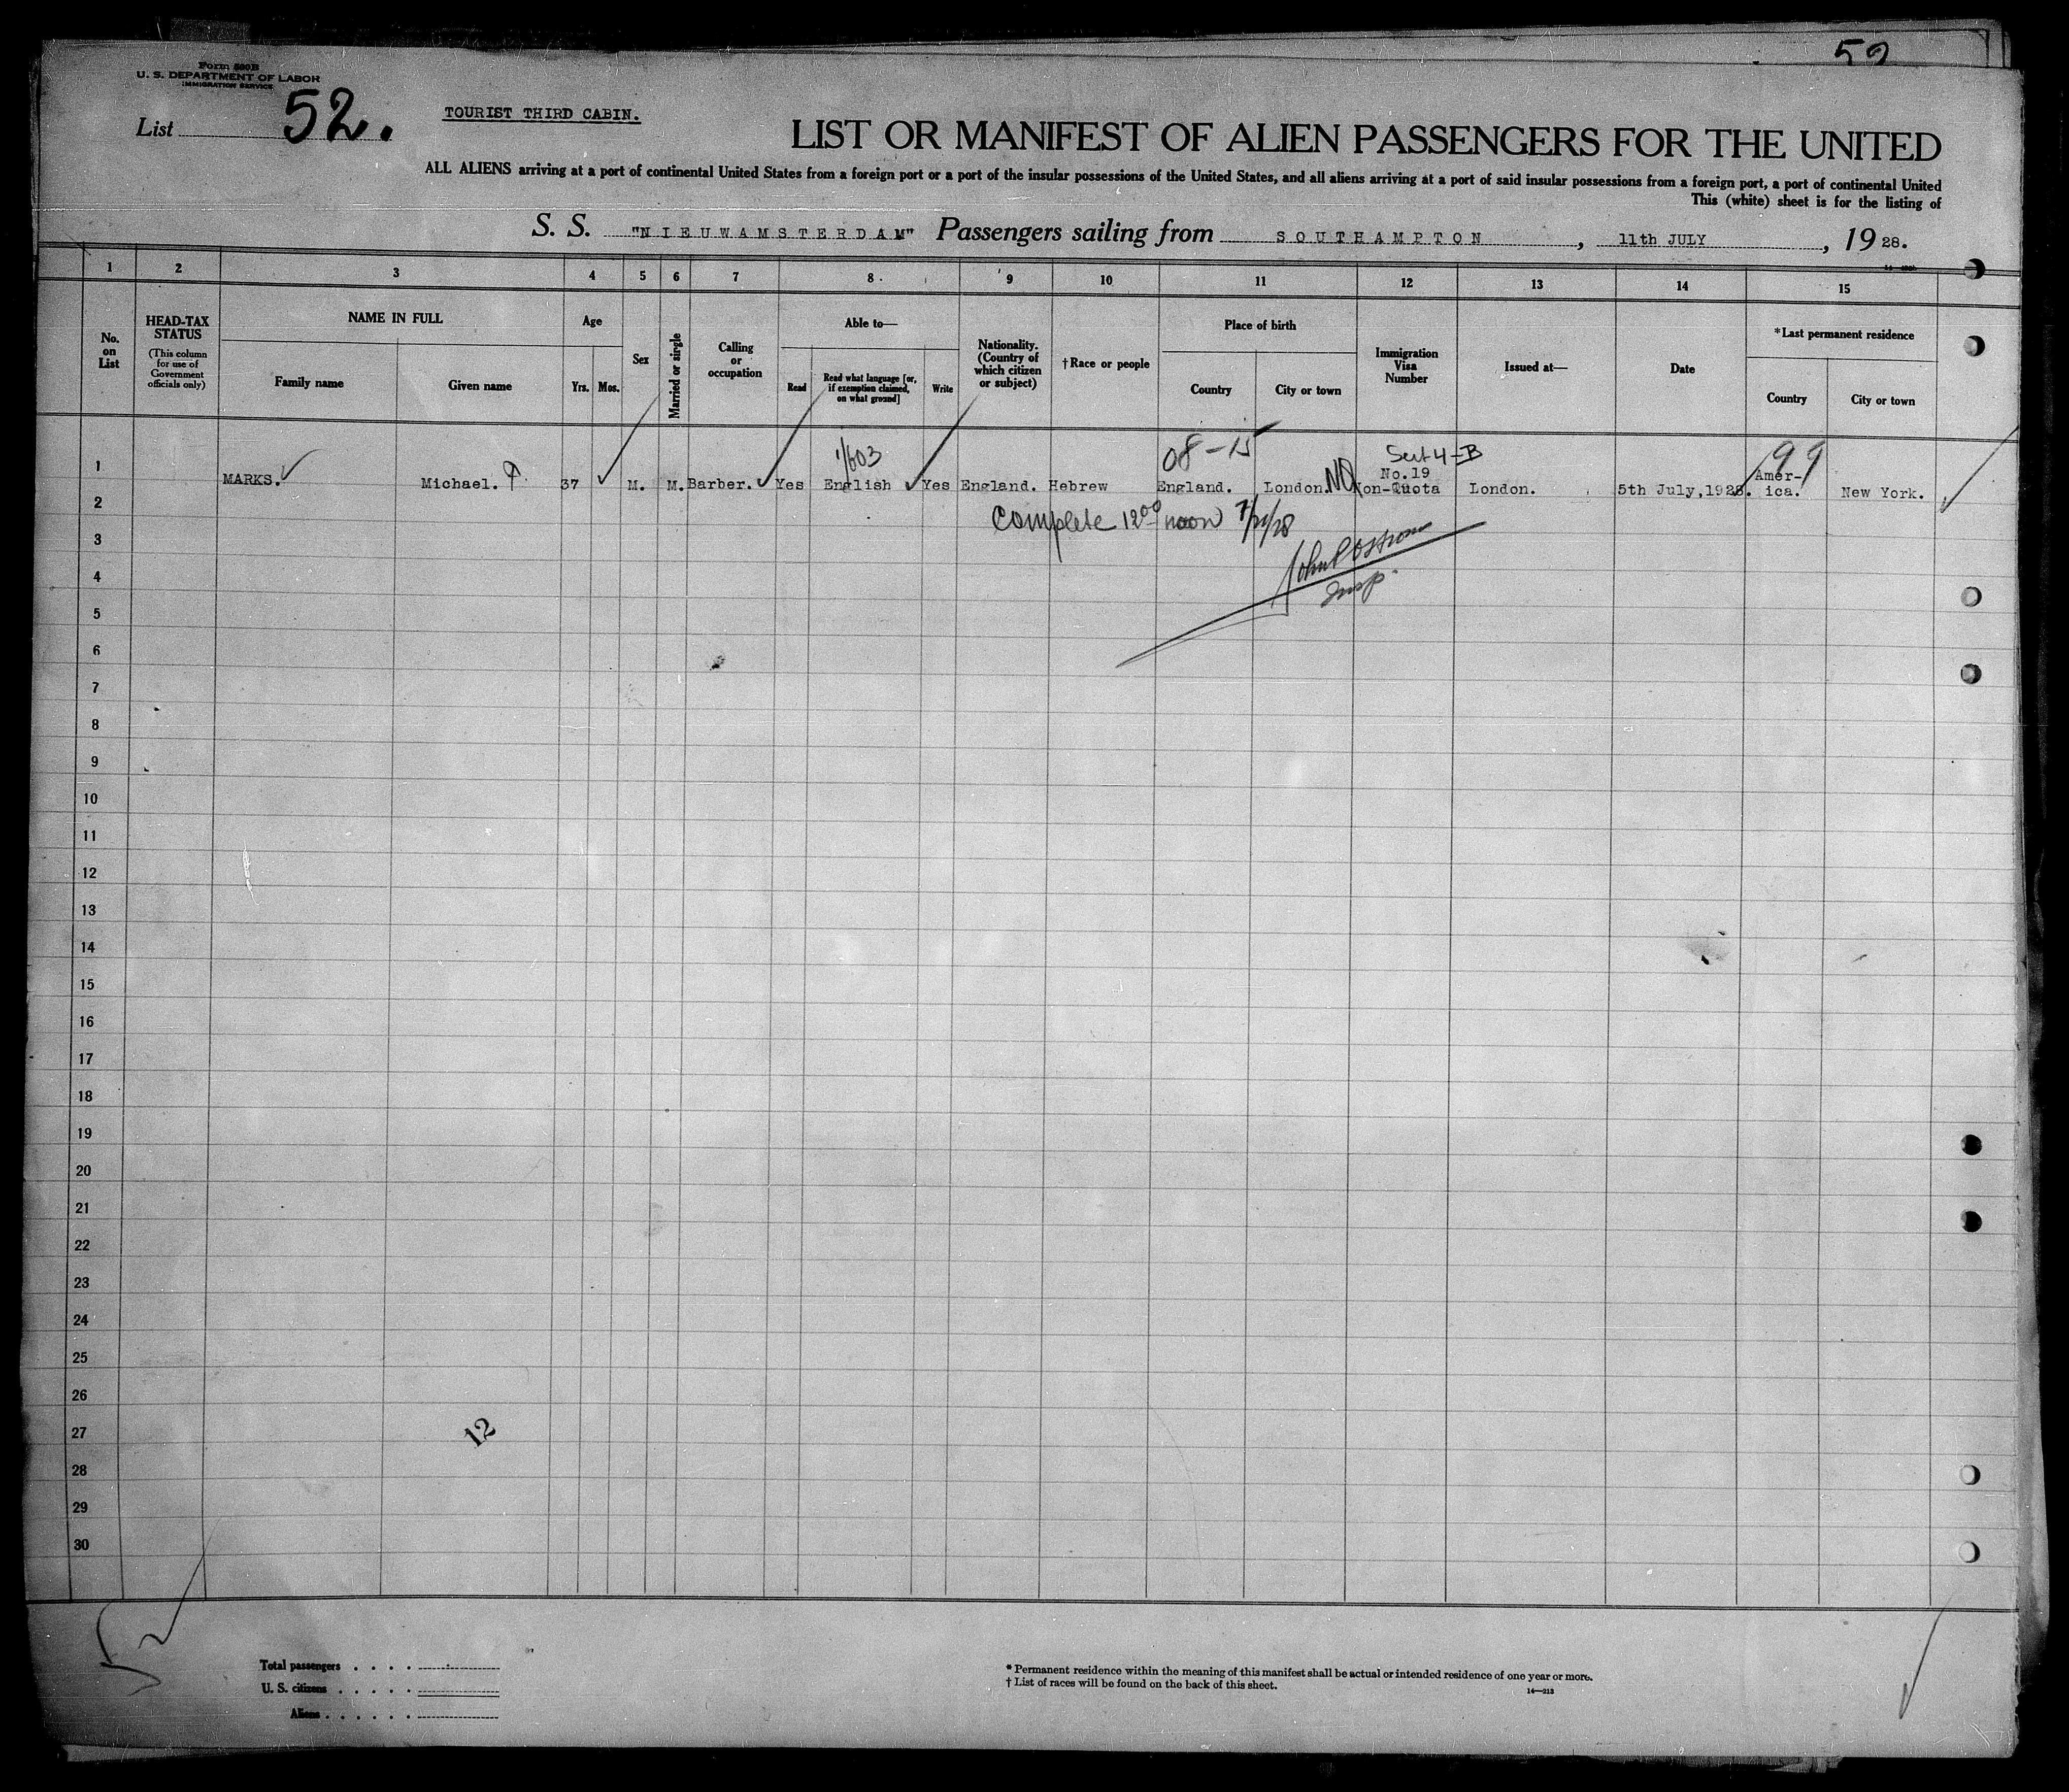 52
Form 500B
U. S. DEPARTMENT OF LABOR
IMMIGRATION SERVICE
List 52.
TOURIST THIRD CABIN.
LIST OR MANIFEST OF ALIEN PASSENGERS FOR THE UNITED
ALL ALIENS arriving at a port of continental United States from a foreign port or a port of the insular possessions of the United States, and all aliens arriving at a port of said insular possessions from a foreign port, a port of continental United
This (white) sheet is for the listing of
S. S. "NIEUWAMSTERDAM" Passengers sailing from SOUTHAMPTON, 11th JULY, 1928.
1 2 3 4 5 6 7 8 9 10 11 12 13 14 15
No. on List
HEAD-TAX STATUS
(This column for use of Government officials only)
NAME IN FULL
Family name
Given name
Age
Yrs. Mos.
Sex
Married or single
Calling or occupation
Able to—
Read
Read what language [or, if exemption claimed, on what ground]
Write
Nationality. (Country of which citizen or subject)
†Race or people
Place of birth
Country
City or town
Immigration Visa Number
Issued at—
Date
*Last permanent residence
Country
City or town
1/603 08-15 Sect 4-B 99
1 MARKS. Michael. 37 M. M. Barber. Yes English Yes England. Hebrew England. London. NQ No.19 Non-Quota London. 5th July,1928. Amer-ica. New York.
2 Complete 12 00 noon 7/21/28
3
4 Insp.
5
6
7
8
9
10
11
12
13
14
15
16
17
18
19
20
21
22
23
24
25
26
27 12
28
29
30
Total passengers . . . .
U. S. citizens . . . . .
Aliens . . . . . .
* Permanent residence within the meaning of this manifest shall be actual or intended residence of one year or more.
† List of races will be found on the back of this sheet.
14—213